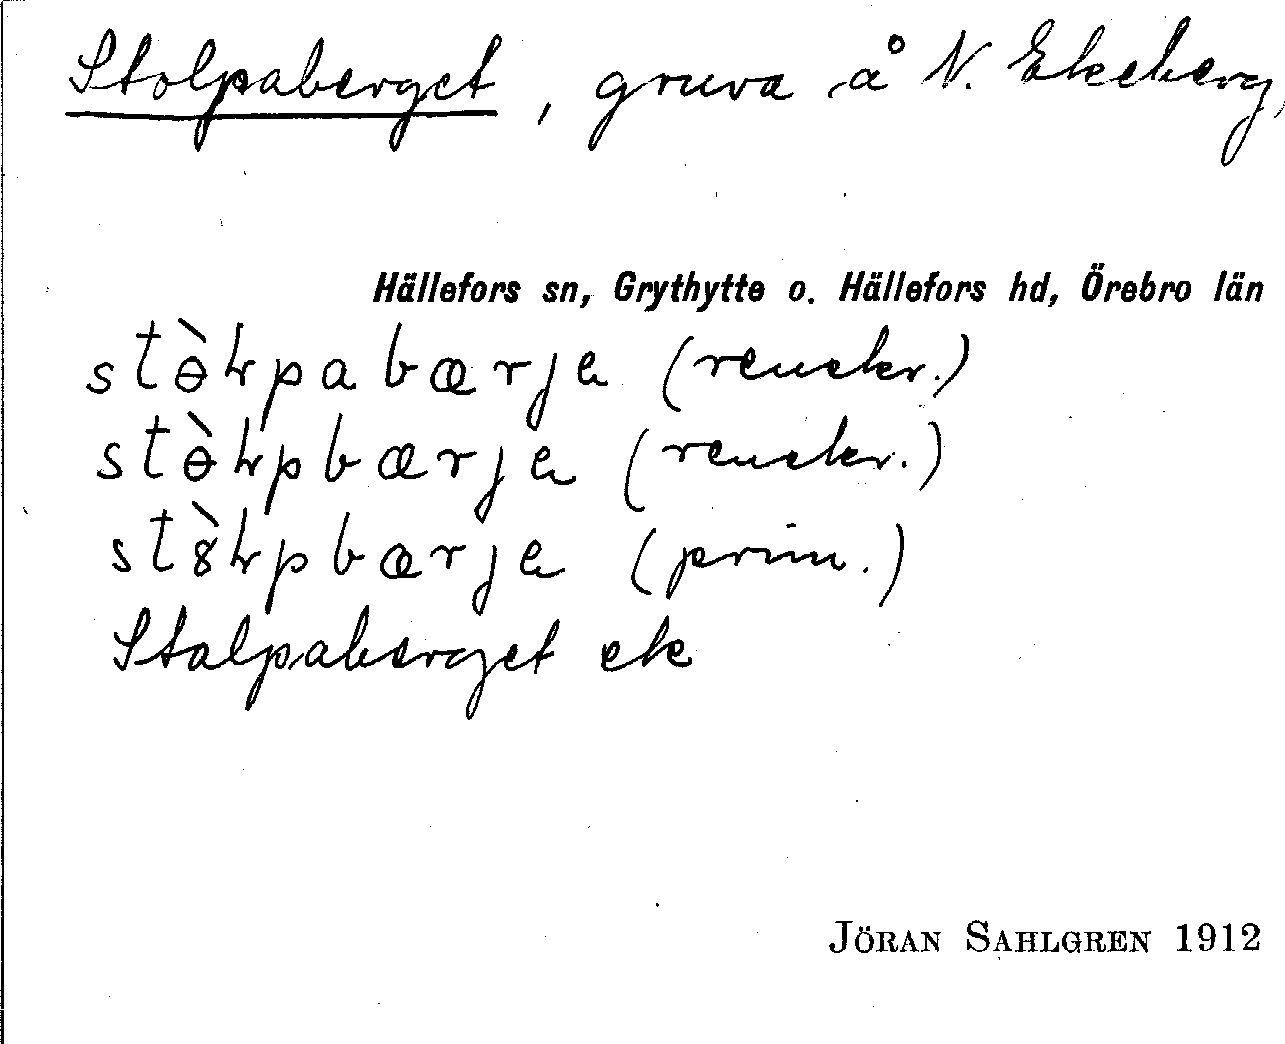 Stolpaberget, gruva å N. Ekeberg,
Hällefors sn, Grythytte o. Hällefors hd, Örebro län
stɵ̀ɫpabærja (renskr.)
stɵ̀ɫpbærja (renskr.)
stꝏ̀ɫpbærja (prim.)
Stalpaberget ek
JÖRAN SAHLGREN 1912